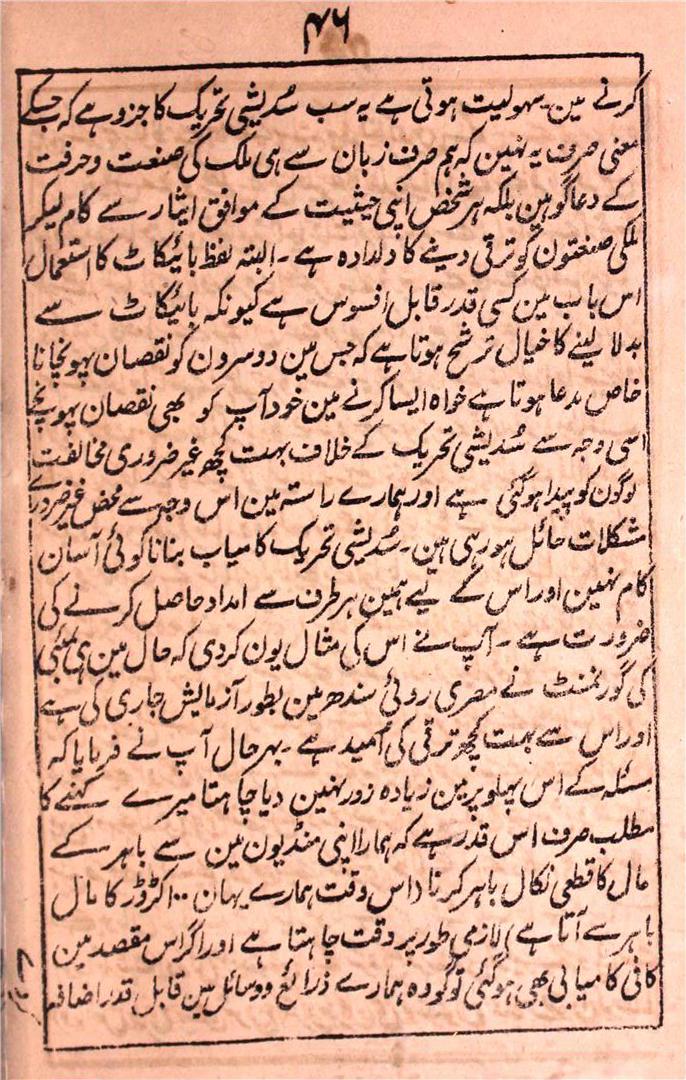 ۴۶
کرنے مین سہولیت ہوتی ہے یہ سب سُدیشی تحریک کا جزو ہے کہ جسکے
معنی صرف یہ نہین کہ ہم صرف زبان سے ہی ملک کی صنعت و حرفت
کے دعاگو ہین بلکہ ہر شخص اپنی حیثیت کے موافق ایثار سے کام لیکر
ملکی صنعتون کو ترقی دینے کا دلدادہ ہے ۔ البتہ لفظ بائیکاٹ کا استعمال
اس باب مین کسی قدر قابل افسوس ہے کیونکہ بائیکاٹ سے
بدلا لینے کا خیال ترشح ہوتا ہے کہ جس مین دوسرون کو نقصان پہونچانا
خاص مدعا ہوتا ہے خواہ ایسا کرنے مین خود آپ کو بھی نقصان پہونچے
اسی وجہ سے سُدیشی تحریک کے خلاف بہت کچھ غیر ضروری مخالفت
لوگون کو پیدا ہو گئی ہے اور ہمارے راستہ مین اس وجہ سے محض غیر ضروری
مشکلات حائل ہو رہی ہین ۔ سُدیشی تحریک کامیاب بنانا کوئی آسان
کام نہین اور اس کے لیے ہمین ہر طرف سے امداد حاصل کرنے کی
ضرورت ہے ۔ آپ نے اس کی مثال یون کر دی کہ حال مین ہی بمبئی
کی گورنمنٹ نے مصری روئی سندھ مین بطور آزمایش جاری کی ہے
اور اس سے بہت کچھ ترقی کی اُمید ہے ۔ بہر حال آپ نے فرمایا کہ
مسئلہ کے اس پہلو پر مین زیادہ زور نہین دیا چاہتا میرے کہنے کا
مطلب صرف اس قدر ہے کہ ہمارا اپنی منڈیون مین سے باہر کے
مال کا قطعی نکال باہر کرنا (اس وقت ہمارے یہان ۱۰۰ کڑوڑ کا مال
باہر سے آتا ہے) لازمی طور پر وقت چاہتا ہے اور اگر اس مقصد مین
کافی کامیابی بھی ہو گئی تو گو وہ ہمارے ذرائع و وسائل مین قابل قدر اضافہ